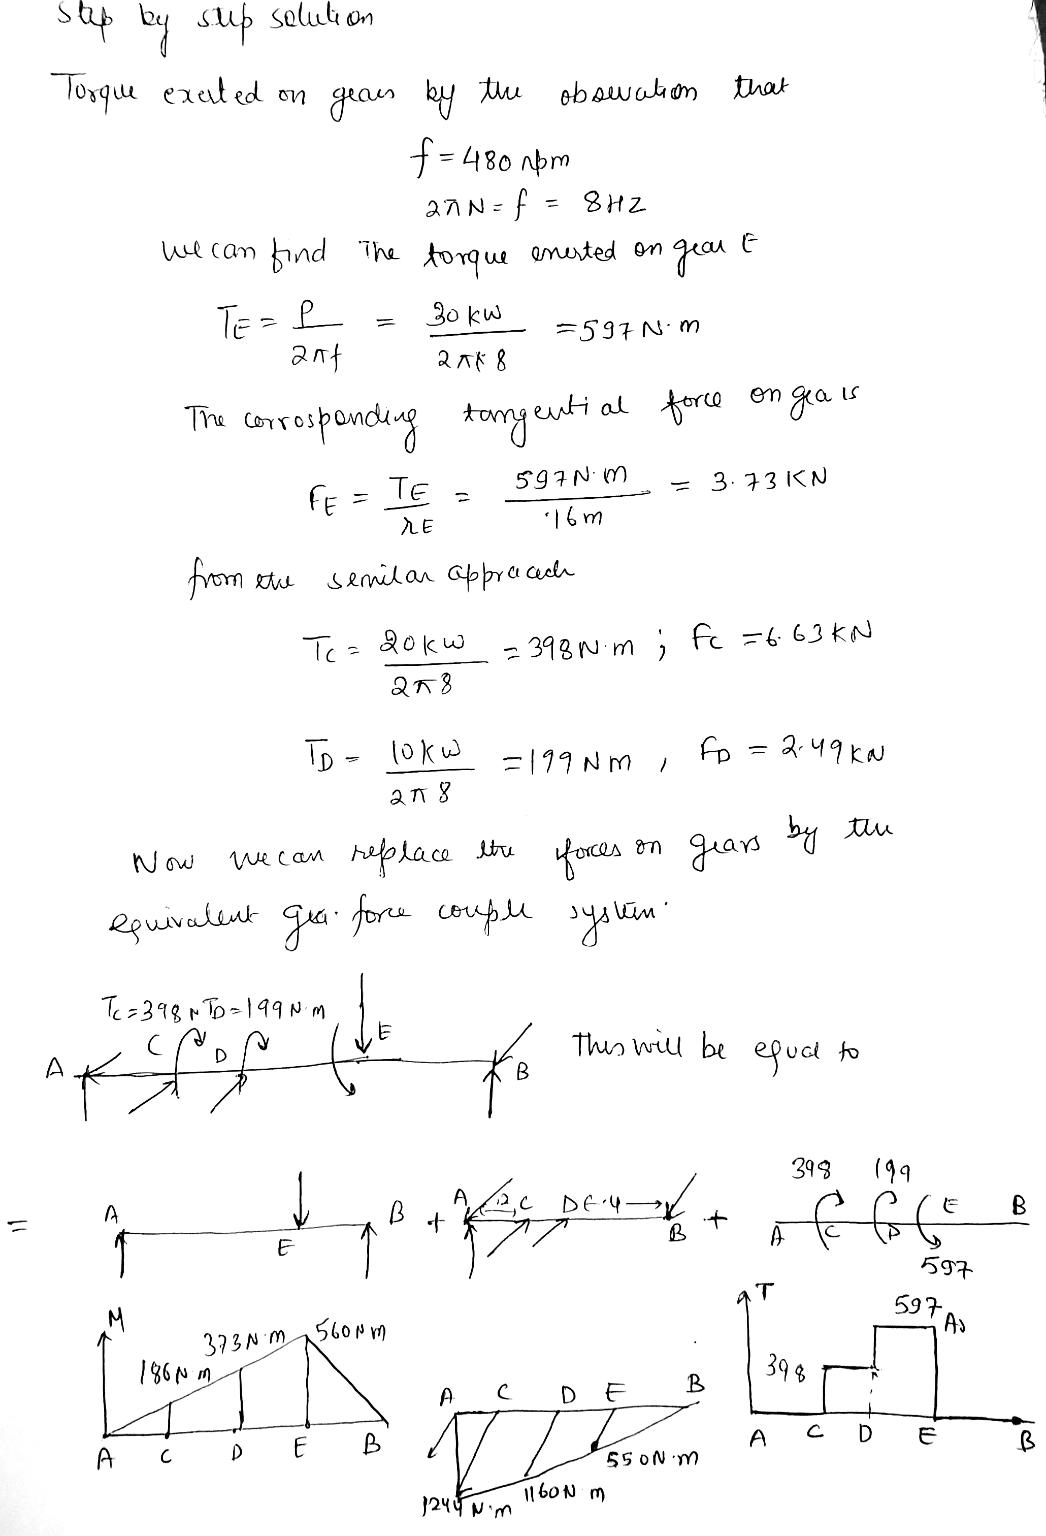 step by step solution
Torque exerted on gears by the observation that
f = 480 rpm
2πN = f = 8HZ
we can find The torque exerted on gear E
TE = P/2πf = 30 kw/2π*8 = 597 N·m
The corrosponding tangential force on gea is
FE = TE/rE = 597 N·m/·16m = 3.73 KN
from the semilar appracach
Tc = 20kw/2π8 = 398 N·m ; Fc = 6.63 KN
TD = 10kw/2π8 = 199 N m , FD = 2.49 KN
Now we can replace the forces on gears by the
equivalent gea. force couple system.
Tc=398 N TD=199 N·m
A C D E B
This will be equal to
= A E B + A 2,C DE·4 B + 398 199 A C D E B 597
M 186 N m 373 N·m 560 N m
A C D E B
A C D E B
1244 N·m 1160 N m 550 N·m
T 398 597 As
A C D E B